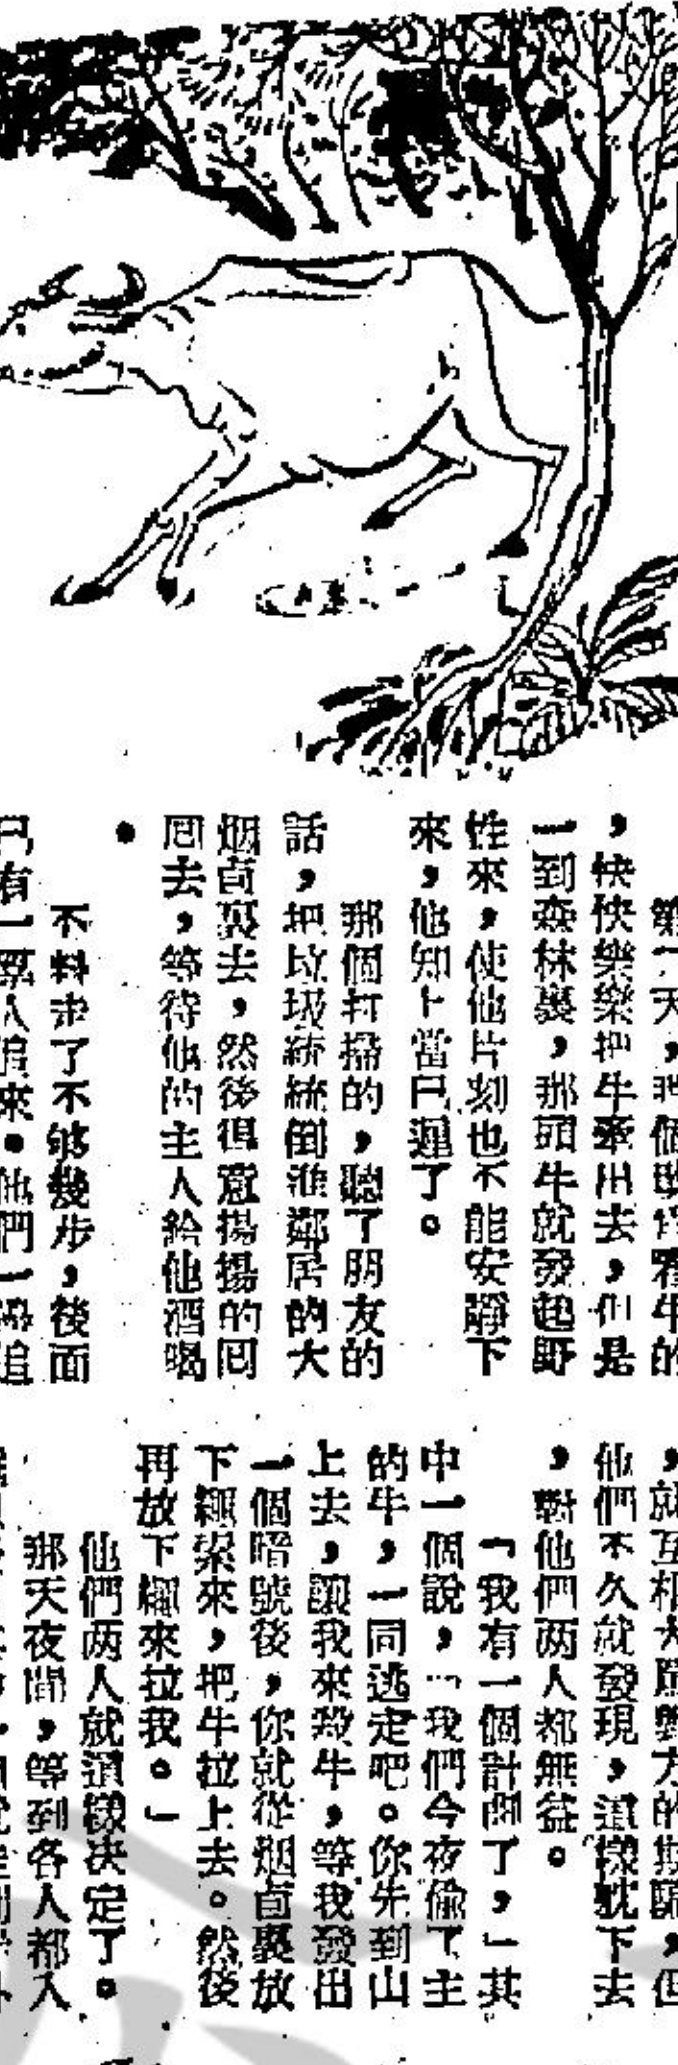 第二天，那個
，快快樂樂把牛牽出去，但是
一到森林裏，那頭牛就發起野
性來，使他片刻也不能安靜下
來，他知上當已遲了。
那個打掃的，聽了朋友的
話，把垃圾統統倒進鄰居的大
烟囱裏去，然後得意揚揚的囘
囘去，等待他的主人給他酒喝
。
不料走了不够幾步，後面
已有一羣人追來。他們一
，就互相大罵對方的欺騙，但
他們不久就發現，這樣 下去
，對他們两人都無益。
「我有一個計劃了，」其
中一個說，「我們今夜偷了主
的牛，一同逃走吧。你先到山
上去，讓我來殺牛，等我發出
一個暗號後，你就從烟囱裏放
下繩索來，把牛拉上去。然後
再放下繩來拉我。」
他們两人就這樣决定了。
那天夜間，等到各人都入